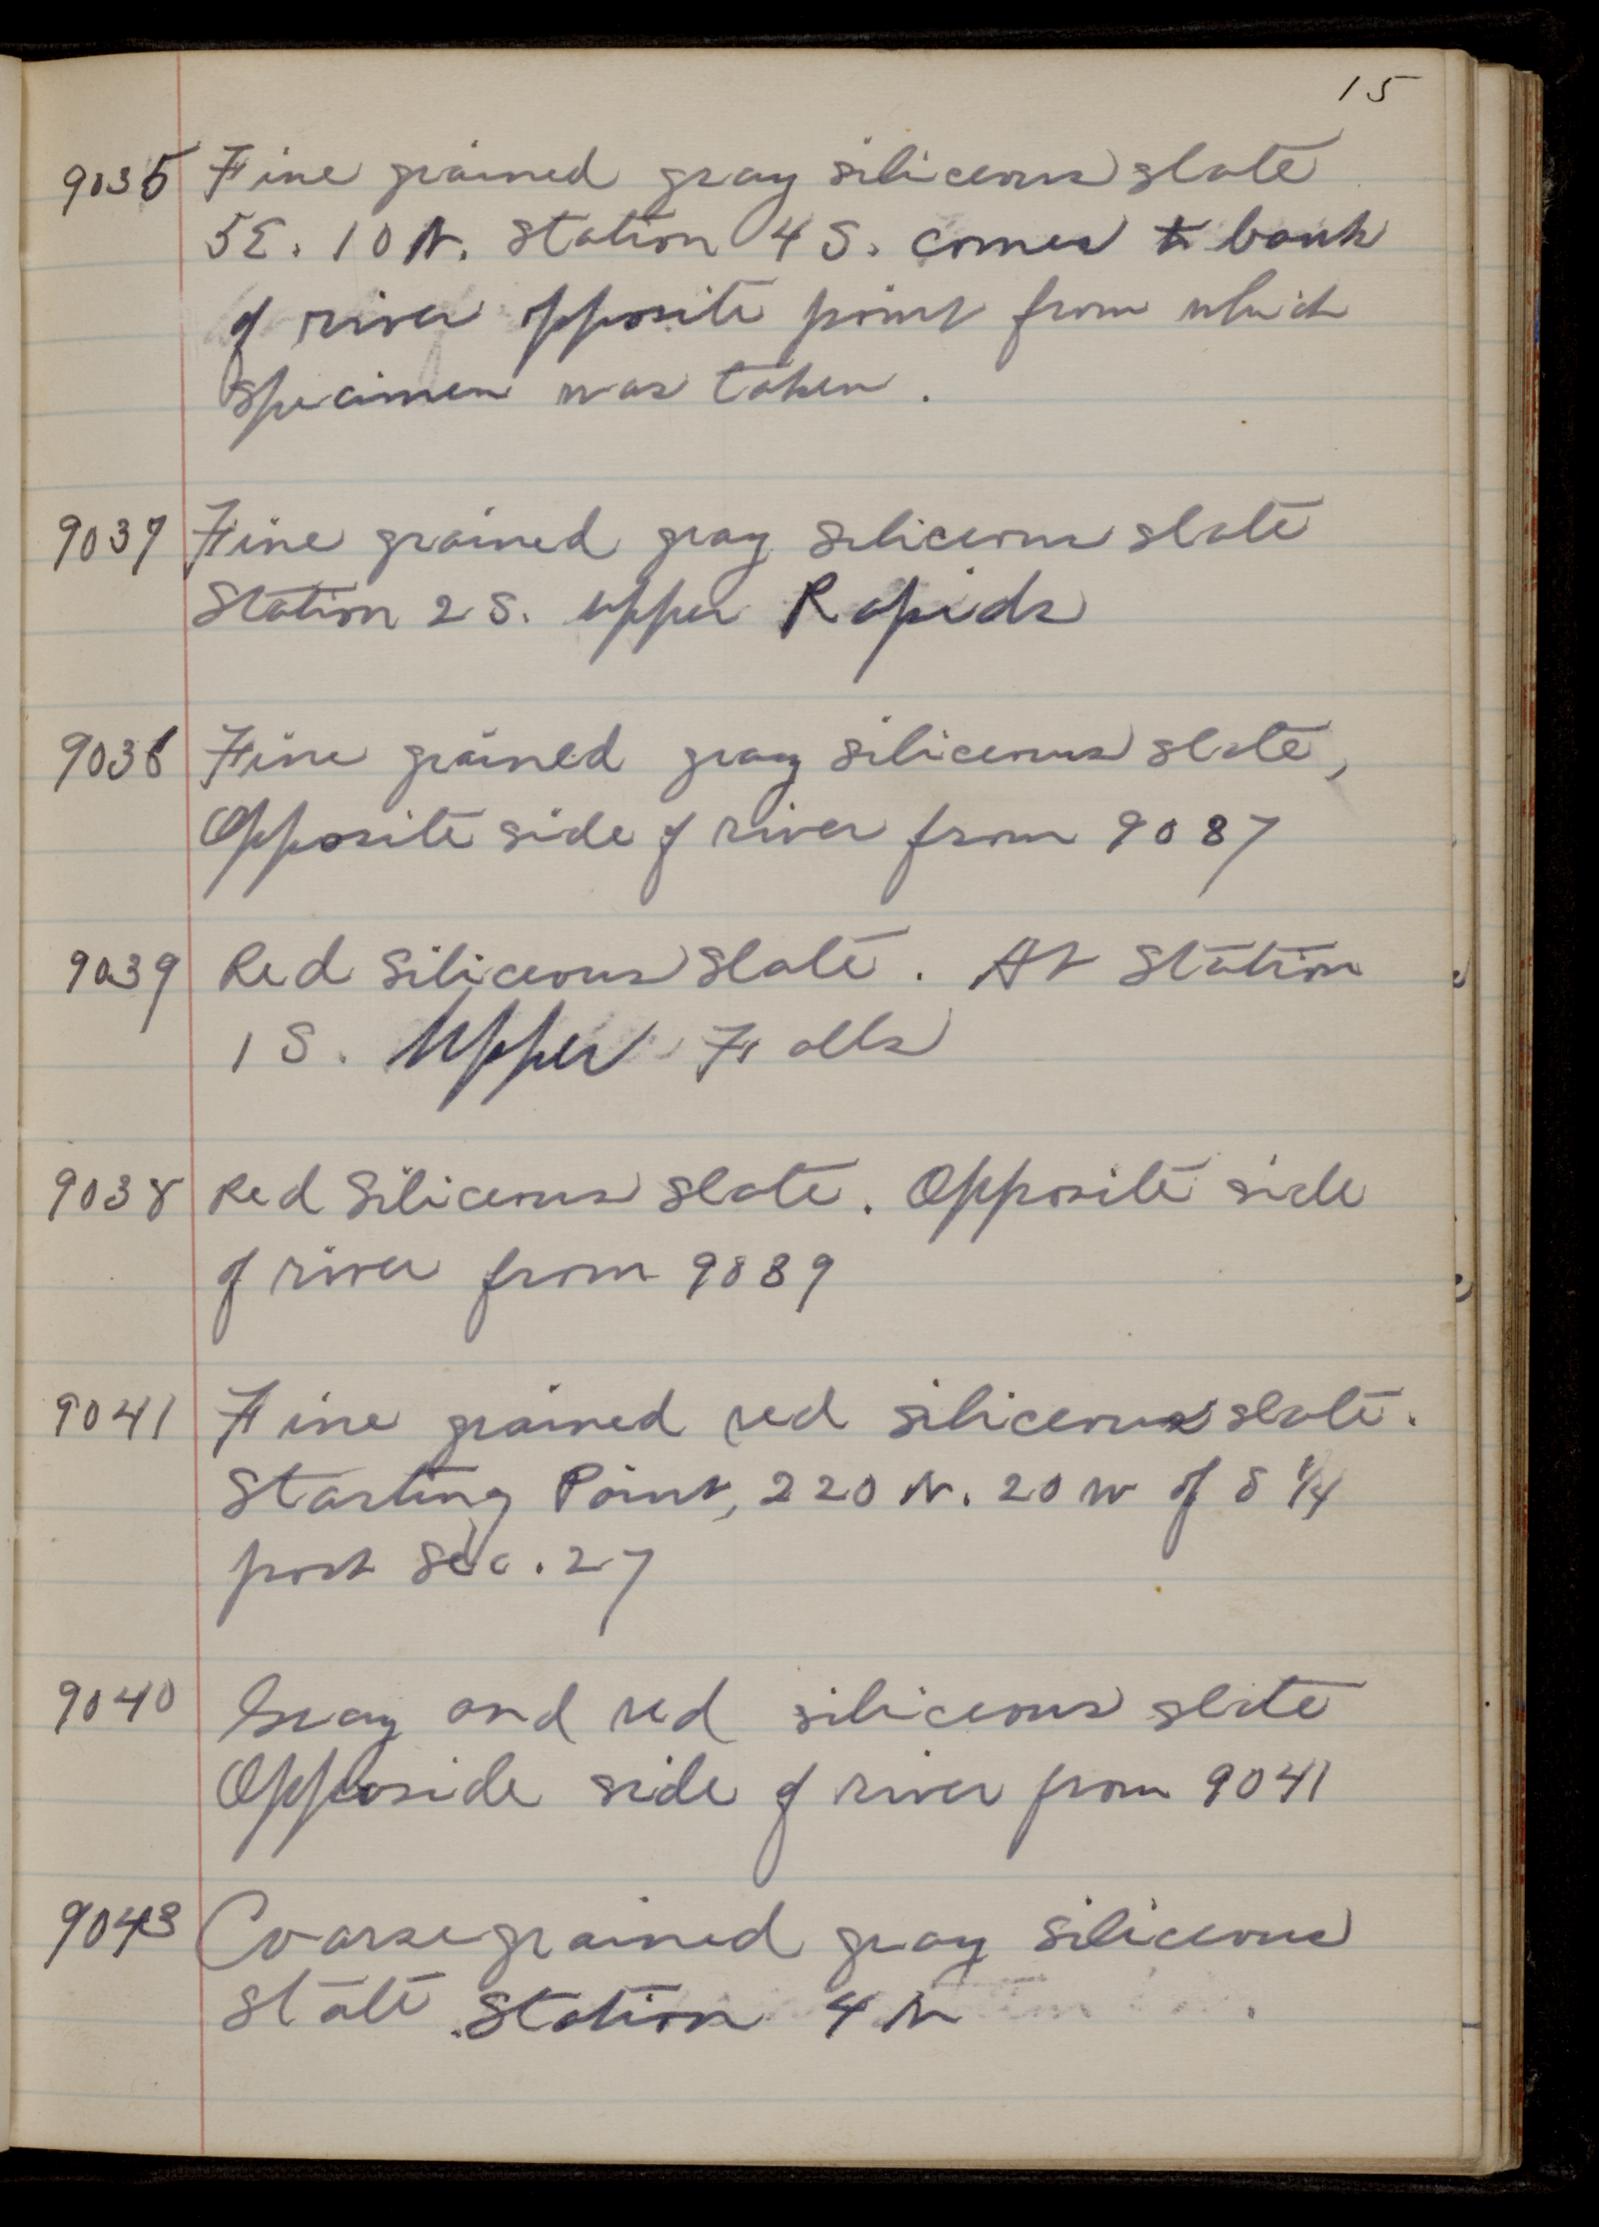 15
9035 Fine grained gray siliceous slate
5E. 10 N. Station 4 S. comes to bank
of river opposite point from which
specimen was taken.
9037 Fine grained gray siliceous slate
Station 2 S. Upper Rapids
9036 Fine grained gray siliceous slate,
Opposite side of river from 9037
9039 Red siliceous slate. At Station
1 S. Upper Falls
9038 Red Siliceous slate. Opposite side
of river from 9039
9041 Fine grained red siliceous slate.
Starting Point, 220 N. 20 W of S 1/4
post Sec. 27
9040 Gray and red siliceous slate
Opposide side of river from 9041
9043 Coarse grained gray siliceous
State. Station 4 N